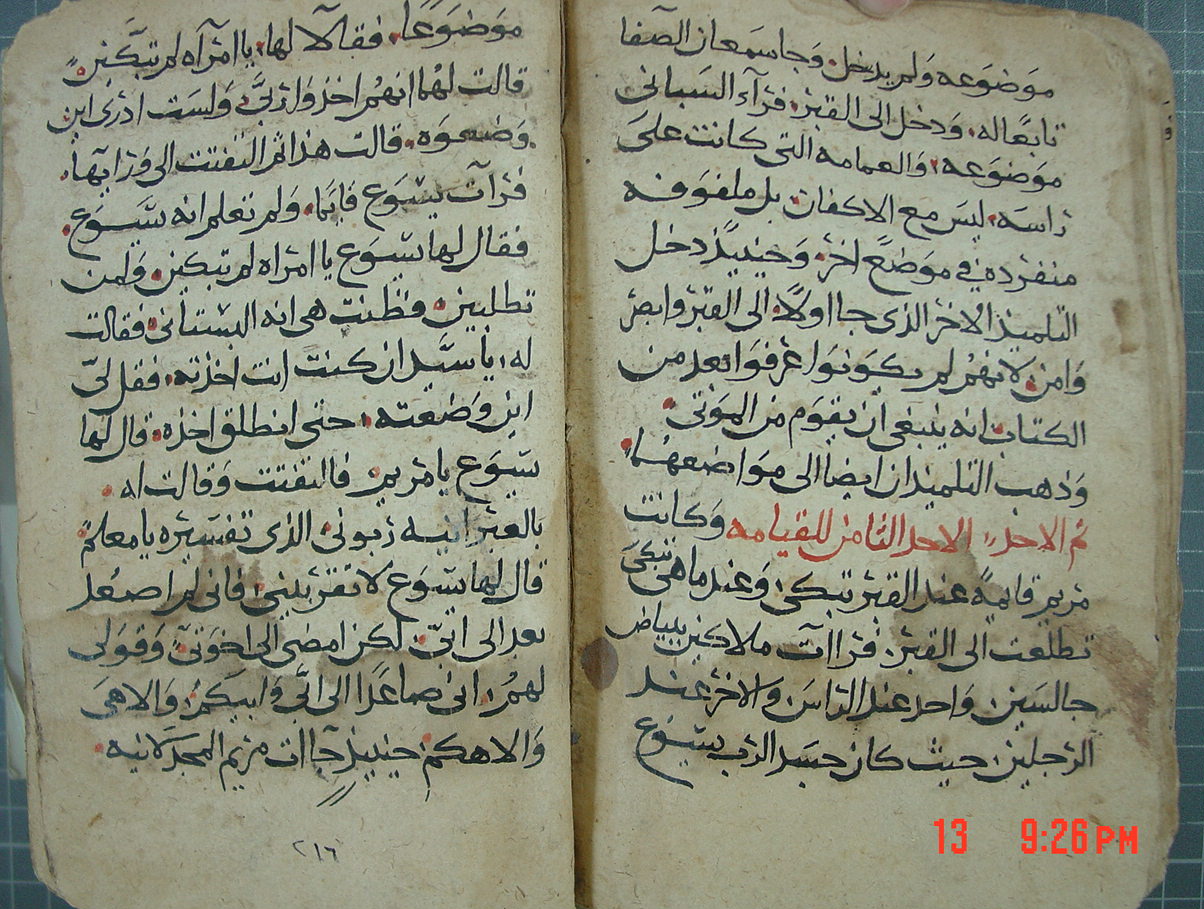 موضوعه ولم يدخل وجا سمعان الصفا
تابعًا له ودخل الى القبر فرآء السبانى
موضوعه والعمامه التى كانت على
راسه ليس مع الاكفان بل ملفوفه
منفرده في موضعً اخر وحينيذً دخل
التلميذ الاخر الذى جا اولاً الى القبر وابصر
وامن لانهم لم يكونوا عرفوا بعد من
الكتاب انه ينبغى ان يقوم من الموتى
وذهب التلميذان ايضا الى مواضعهما
تم الاحد الاحد الثامن للقيامه وكانت
مريم قايمةً عند القبر تبكى وعند ما هى تبكى
تطلعت الى القبر فراات ملاكين ببياض
جالسين واحد عند الراس والاخر عند
الرجلين حيث كان جسد الرب يسوع
موضوعًا فقالا لها يا امرآه لم تبكين
قالت لهما انهم اخذوا ربى ولست ادرى اين
وضعوه قالت هذا ثم التفتت الى ورايها
فرآت يسوع قايما ولم تعلم انه يسوع
فقال لها يسوع يا امراه لم تبكين ولمن
تطلبين فظنت هى انه البستانى فقالت
له يا سيد ان كنت انت اخذته فقل لى
اين وضعته حتى انطلق اخذه قال لها
يسوع يا مريم فالتفتت وقالت له
بالعبرانيه ربونى الذى تفسيره يا معلم
قال لها يسوع لا تقربينى فانى لم اصعد
بعد الى ابى لكن امضى الى اخوتى وقولى
لهم انى صاعدًا الى ابى وابيكم والاهى
والاهكم حينيذ جاات مريم المجدلانيه
٢١٦
13 9:26PM